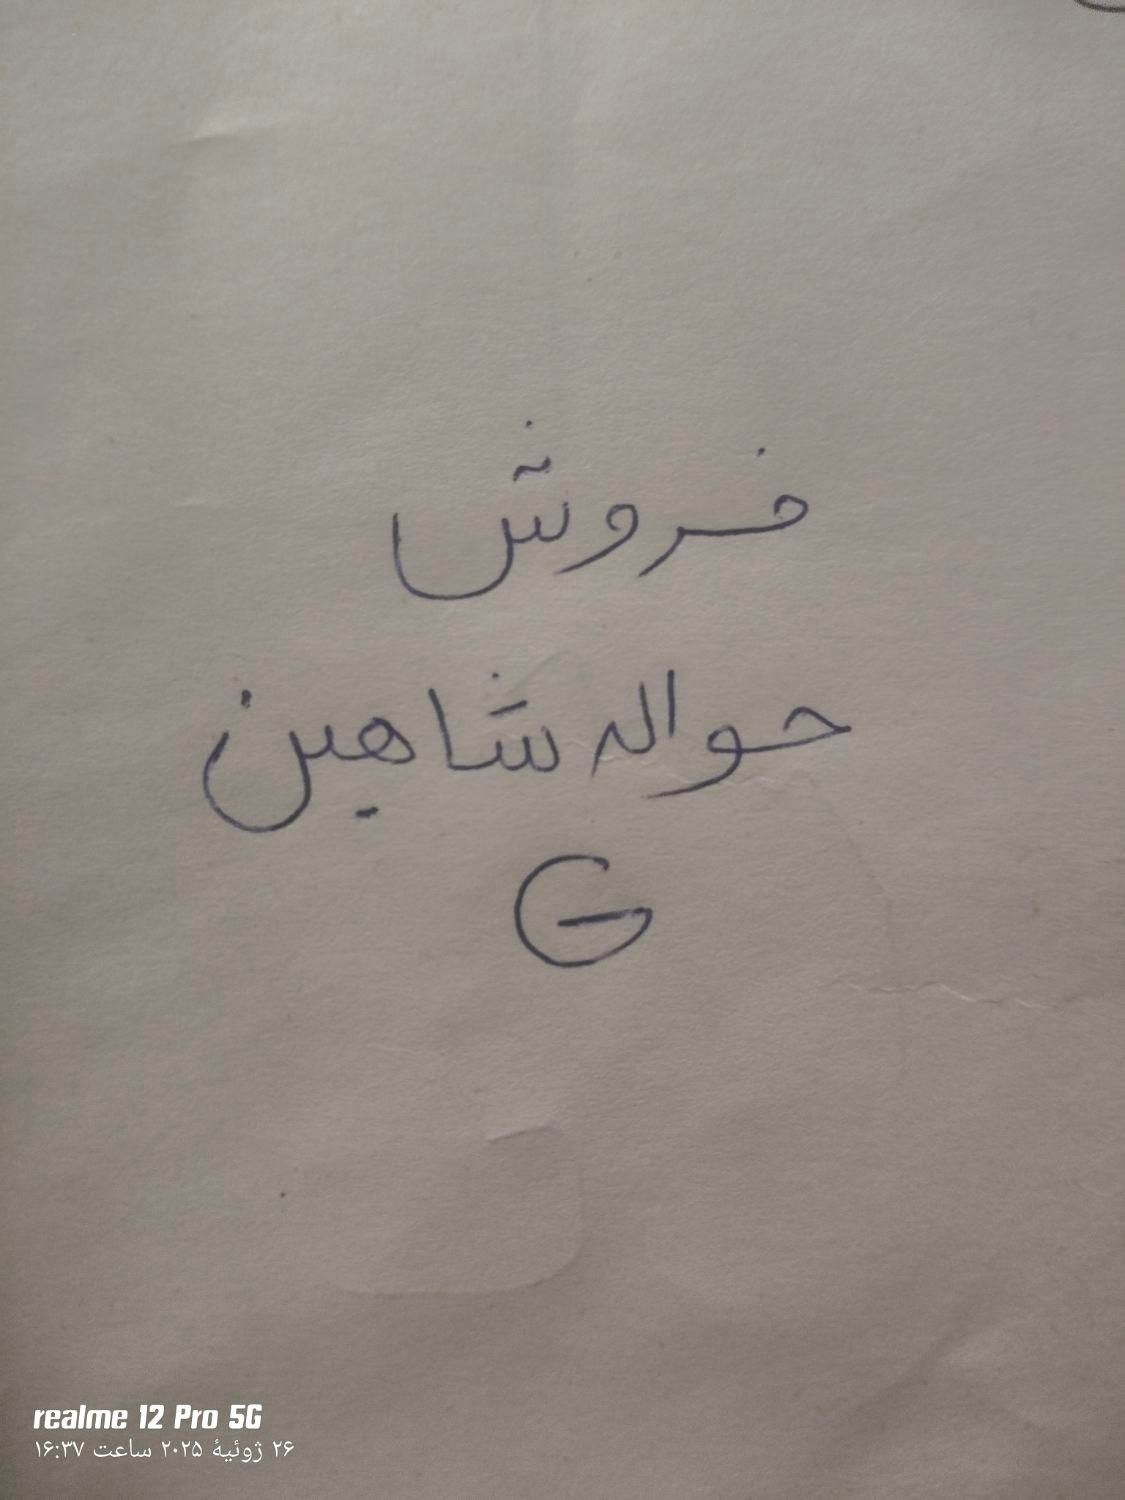 فروش
حواله شاهین
G
realme 12 Pro 5G
۲۶ ژوئیهٔ ۲۰۲۵ ساعت ۱۶:۳۷